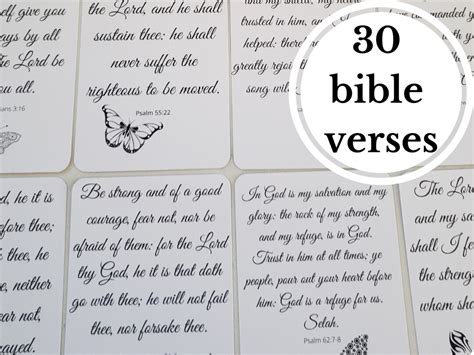 self give you
ays by all
Lord be
you all.
3:16
the Lord, and he shall
sustain thee: he shall
never suffer the
righteous to be moved.
Psalm 55:22
trusted in him, and
helped:
greatly
song
30
bible
verses
d, he it is
before thee;
thee, he
, neither
Be strong and of a good
courage, fear not, nor be
afraid of them: for the Lord
thy God, he it is that doth
go with thee; he will not fail
thee, nor forsake thee.
In God is my salvation and my
glory: the rock of my strength,
and my refuge, is in God.
Trust in him at all times; ye
people, pour out your heart before
him: God is a refuge for us.
Selah.
Psalm 62:7-8
The
and my
shall I
the
my
whom